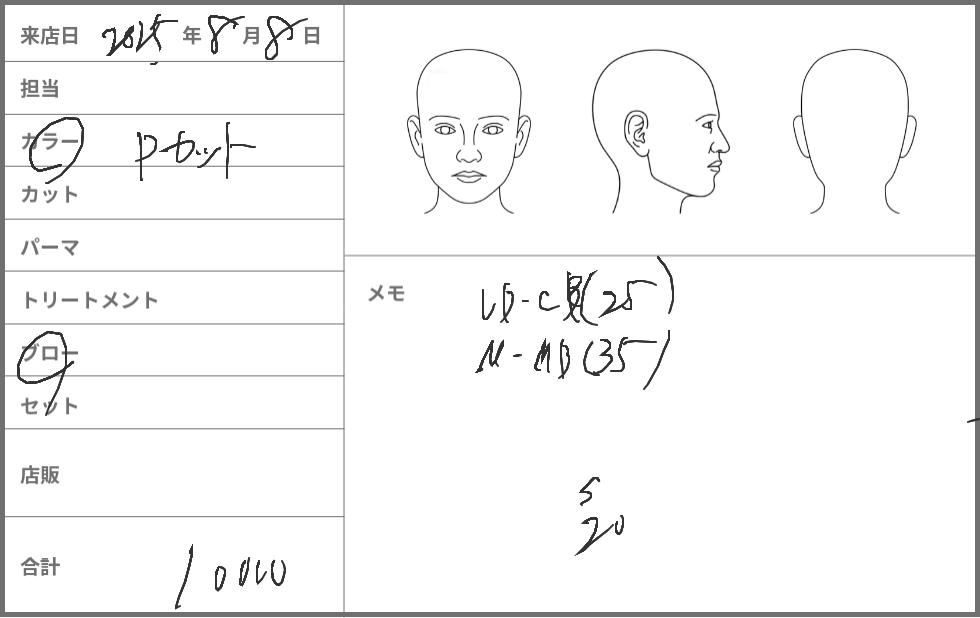 来店日 2025 年 8 月 8 日
担当
カラー Pカット
カット
パーマ
トリートメント
ブロー
セット
店販
合計 10000
メモ
(25)
(35)
5
20